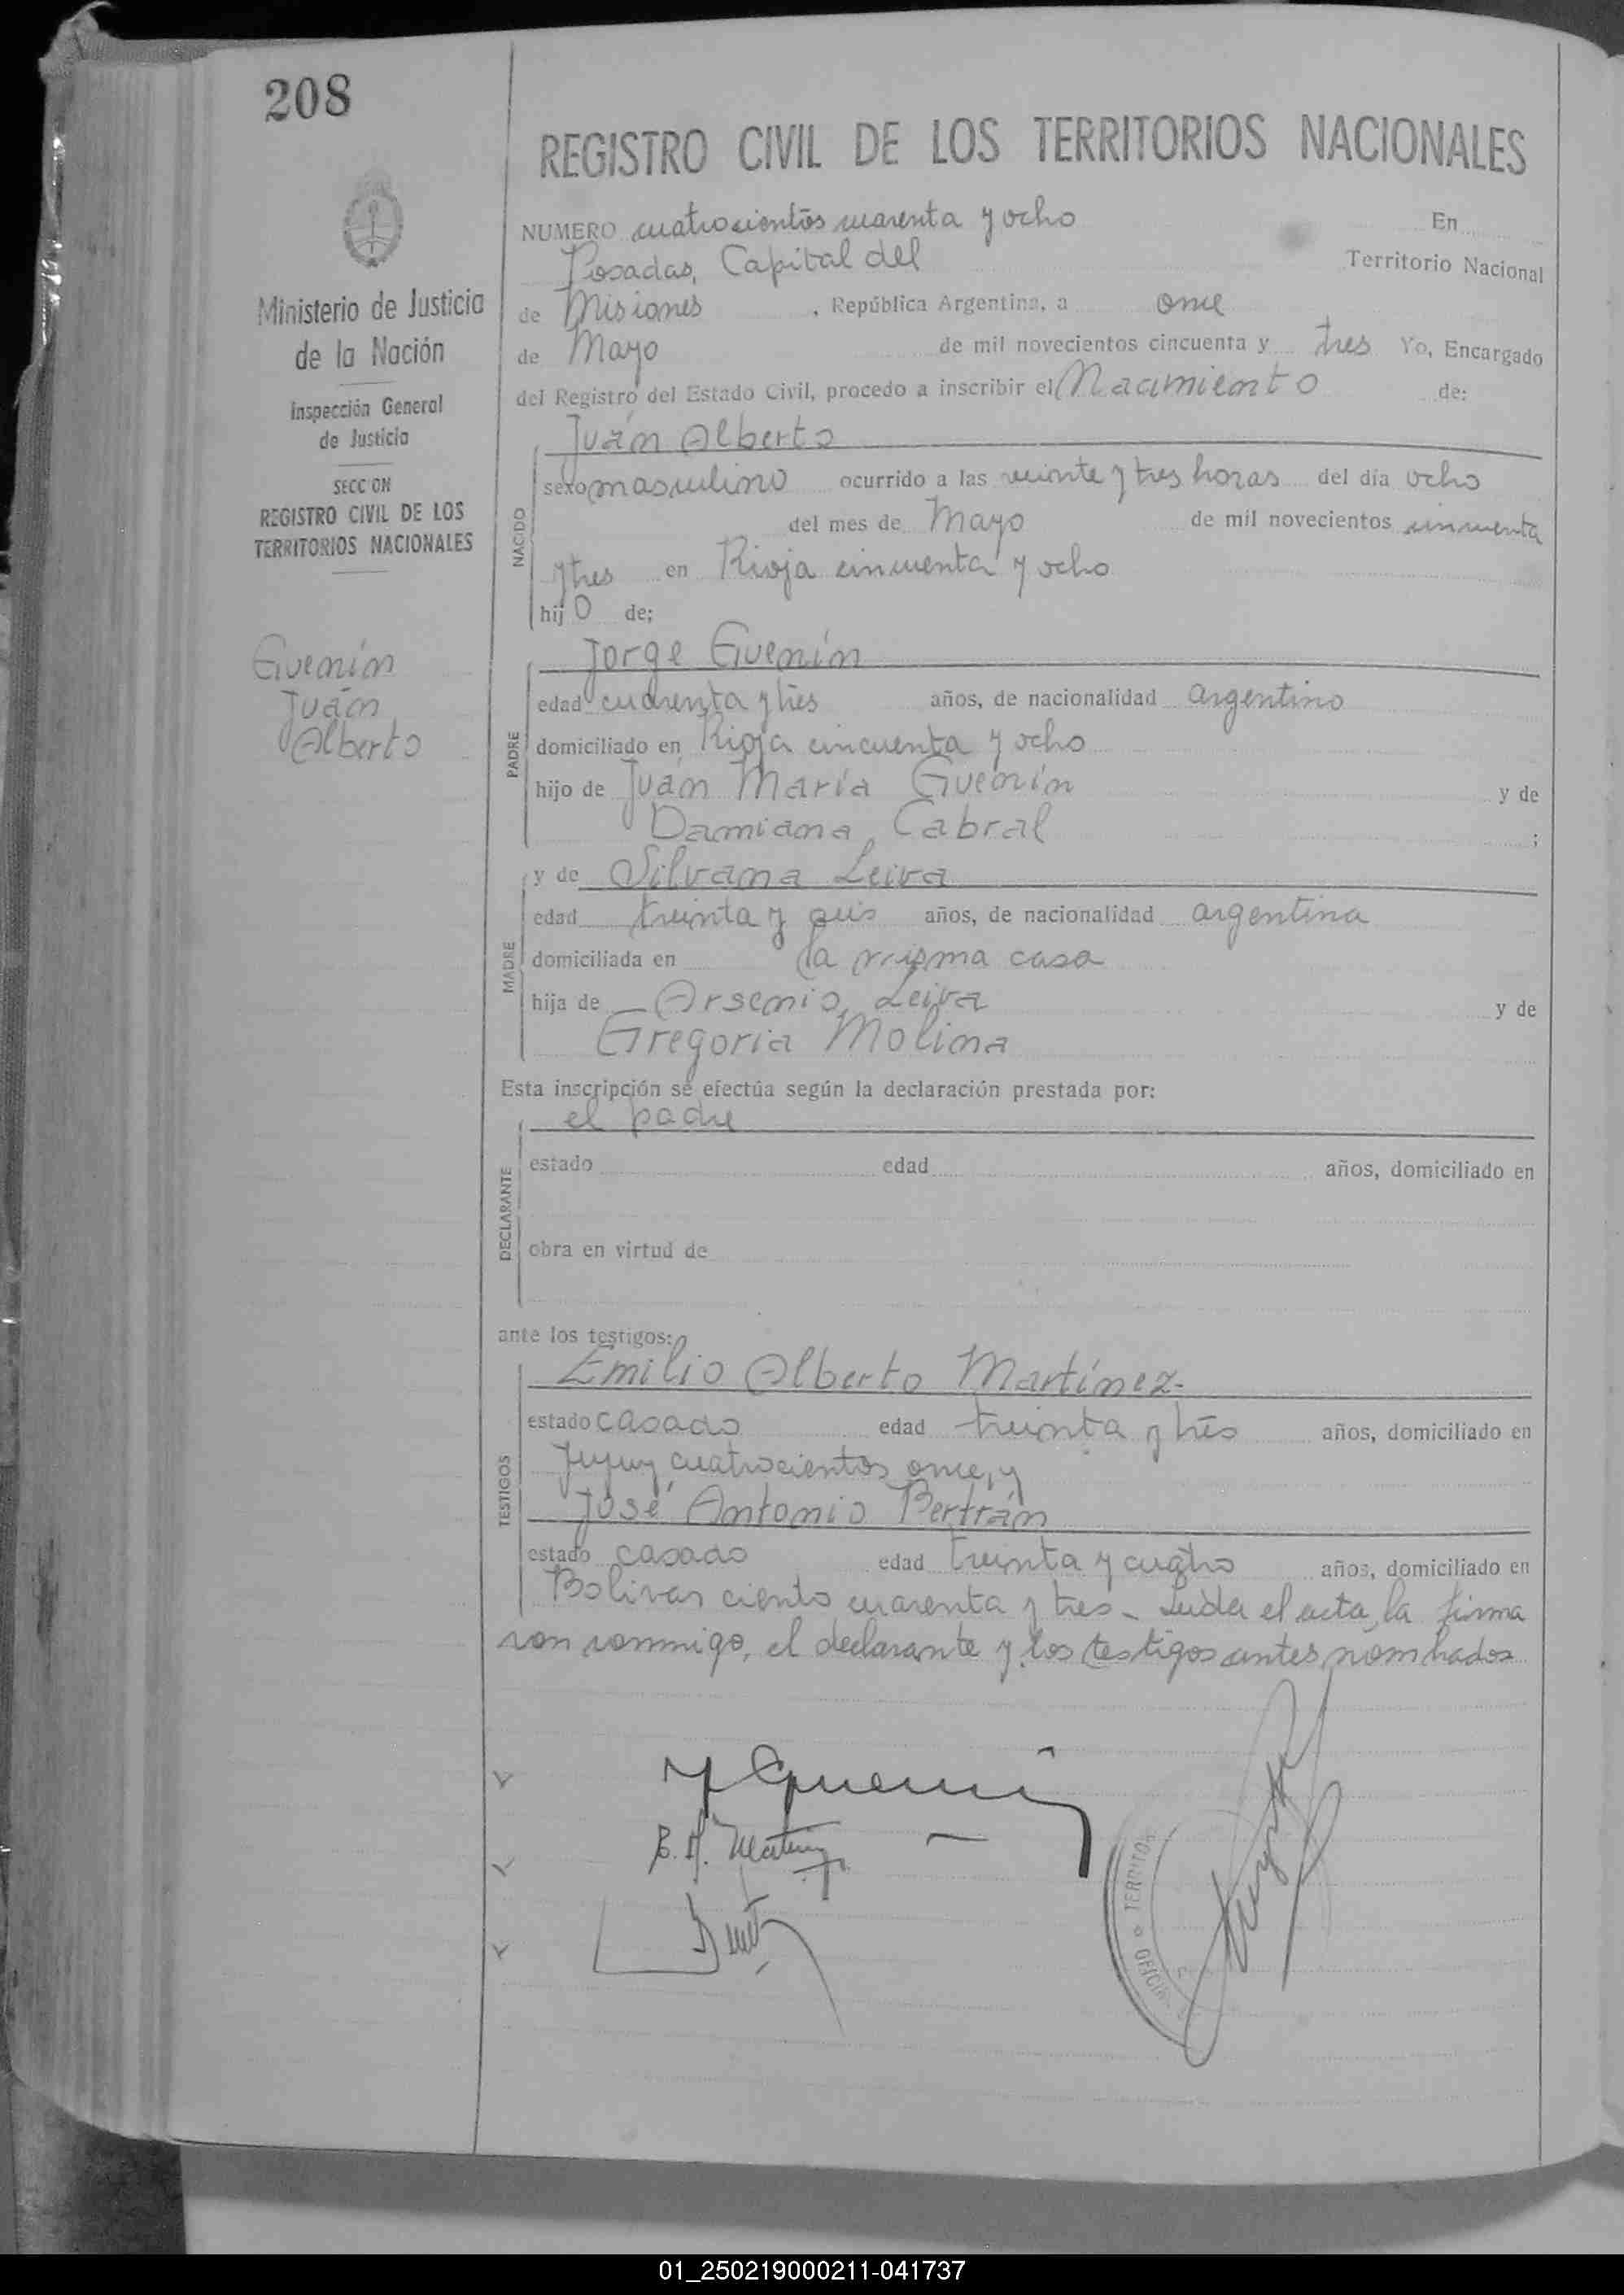 208
REGISTRO CIVIL DE LOS TERRITORIOS NACIONALES
NUMERO cuatrocientos cuarenta y ocho En
Posadas, Capital del Territorio Nacional
de Misiones , República Argentina, a once
de Mayo de mil novecientos cincuenta y tres Yo, Encargado
del Registro del Estado Civil, procedo a inscribir el Nacimiento de:
Ministerio de Justicia
de la Nación
Inspección General
de Justicia
SECCION
REGISTRO CIVIL DE LOS
TERRITORIOS NACIONALES
Guenín
Juán
Alberto
NACIDO
Juán Alberto
sexo masculino ocurrido a las veinte y tres horas del día ocho
del mes de Mayo de mil novecientos cincuenta
y tres en Rioja cincuenta y ocho
hijo de;
PADRE
Jorge Guenín
edad cuarenta y trés años, de nacionalidad argentino
domiciliado en Rioja cincuenta y ocho
hijo de Juán María Guenín y de
Damiana Cabral ;
MADRE
y de Silvana Leiva
edad treinta y seis años, de nacionalidad argentina
domiciliada en la misma casa
hija de Arsenio Leiva y de
Gregoria Molina
Esta inscripción se efectúa según la declaración prestada por:
DECLARANTE
el padre
estado edad años, domiciliado en
obra en virtud de
ante los testigos:
TESTIGOS
Emilio Alberto Martínez-
estado casado edad treinta y trés años, domiciliado en
Jujuy cuatrocientos once, y
José Antonio Bertrán
estado casado edad treinta y cuatro años, domiciliado en
Bolivar ciento cuarenta y tres - Leída el acta, la firma
con conmigo, el declarante y los testigos antes nombrados
J Guenin
E. A. Martinez
TERRITO
OFICI
01_250219000211-041737